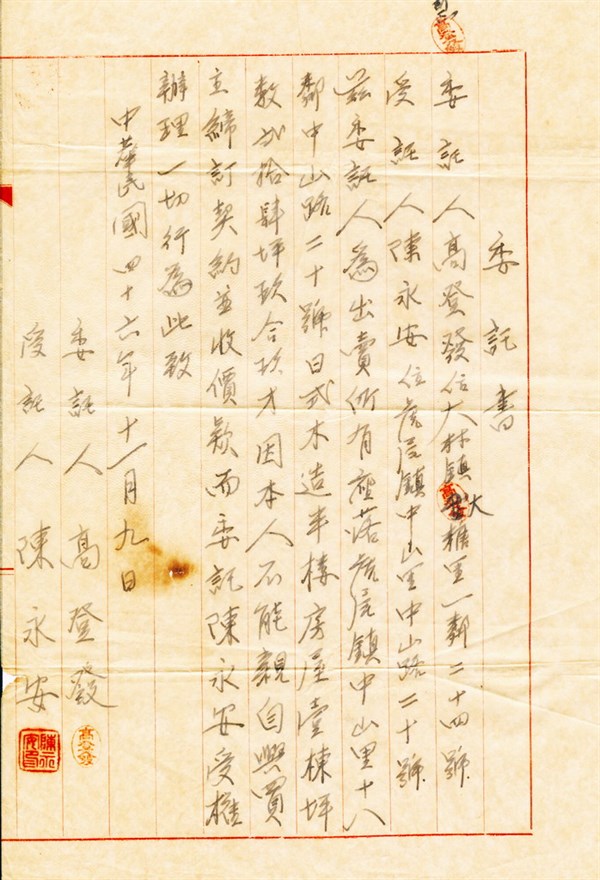 委託書
委託人高登發住大林鎮大糖里一鄰二十四號
受託人陳永安住虎尾鎮中山里中山路二十號
茲委託人為出賣所有座落虎尾鎮中山里十八
鄰中山路二十號日式木造半樓房屋壹棟坪
數貳拾肆坪玖合玖才因本人不能親自與買
主締訂契約並收價款而委託陳永安受權
辦理一切行為此致
中華民國四十六年十一月九日
委託人 高登發
受託人 陳永安